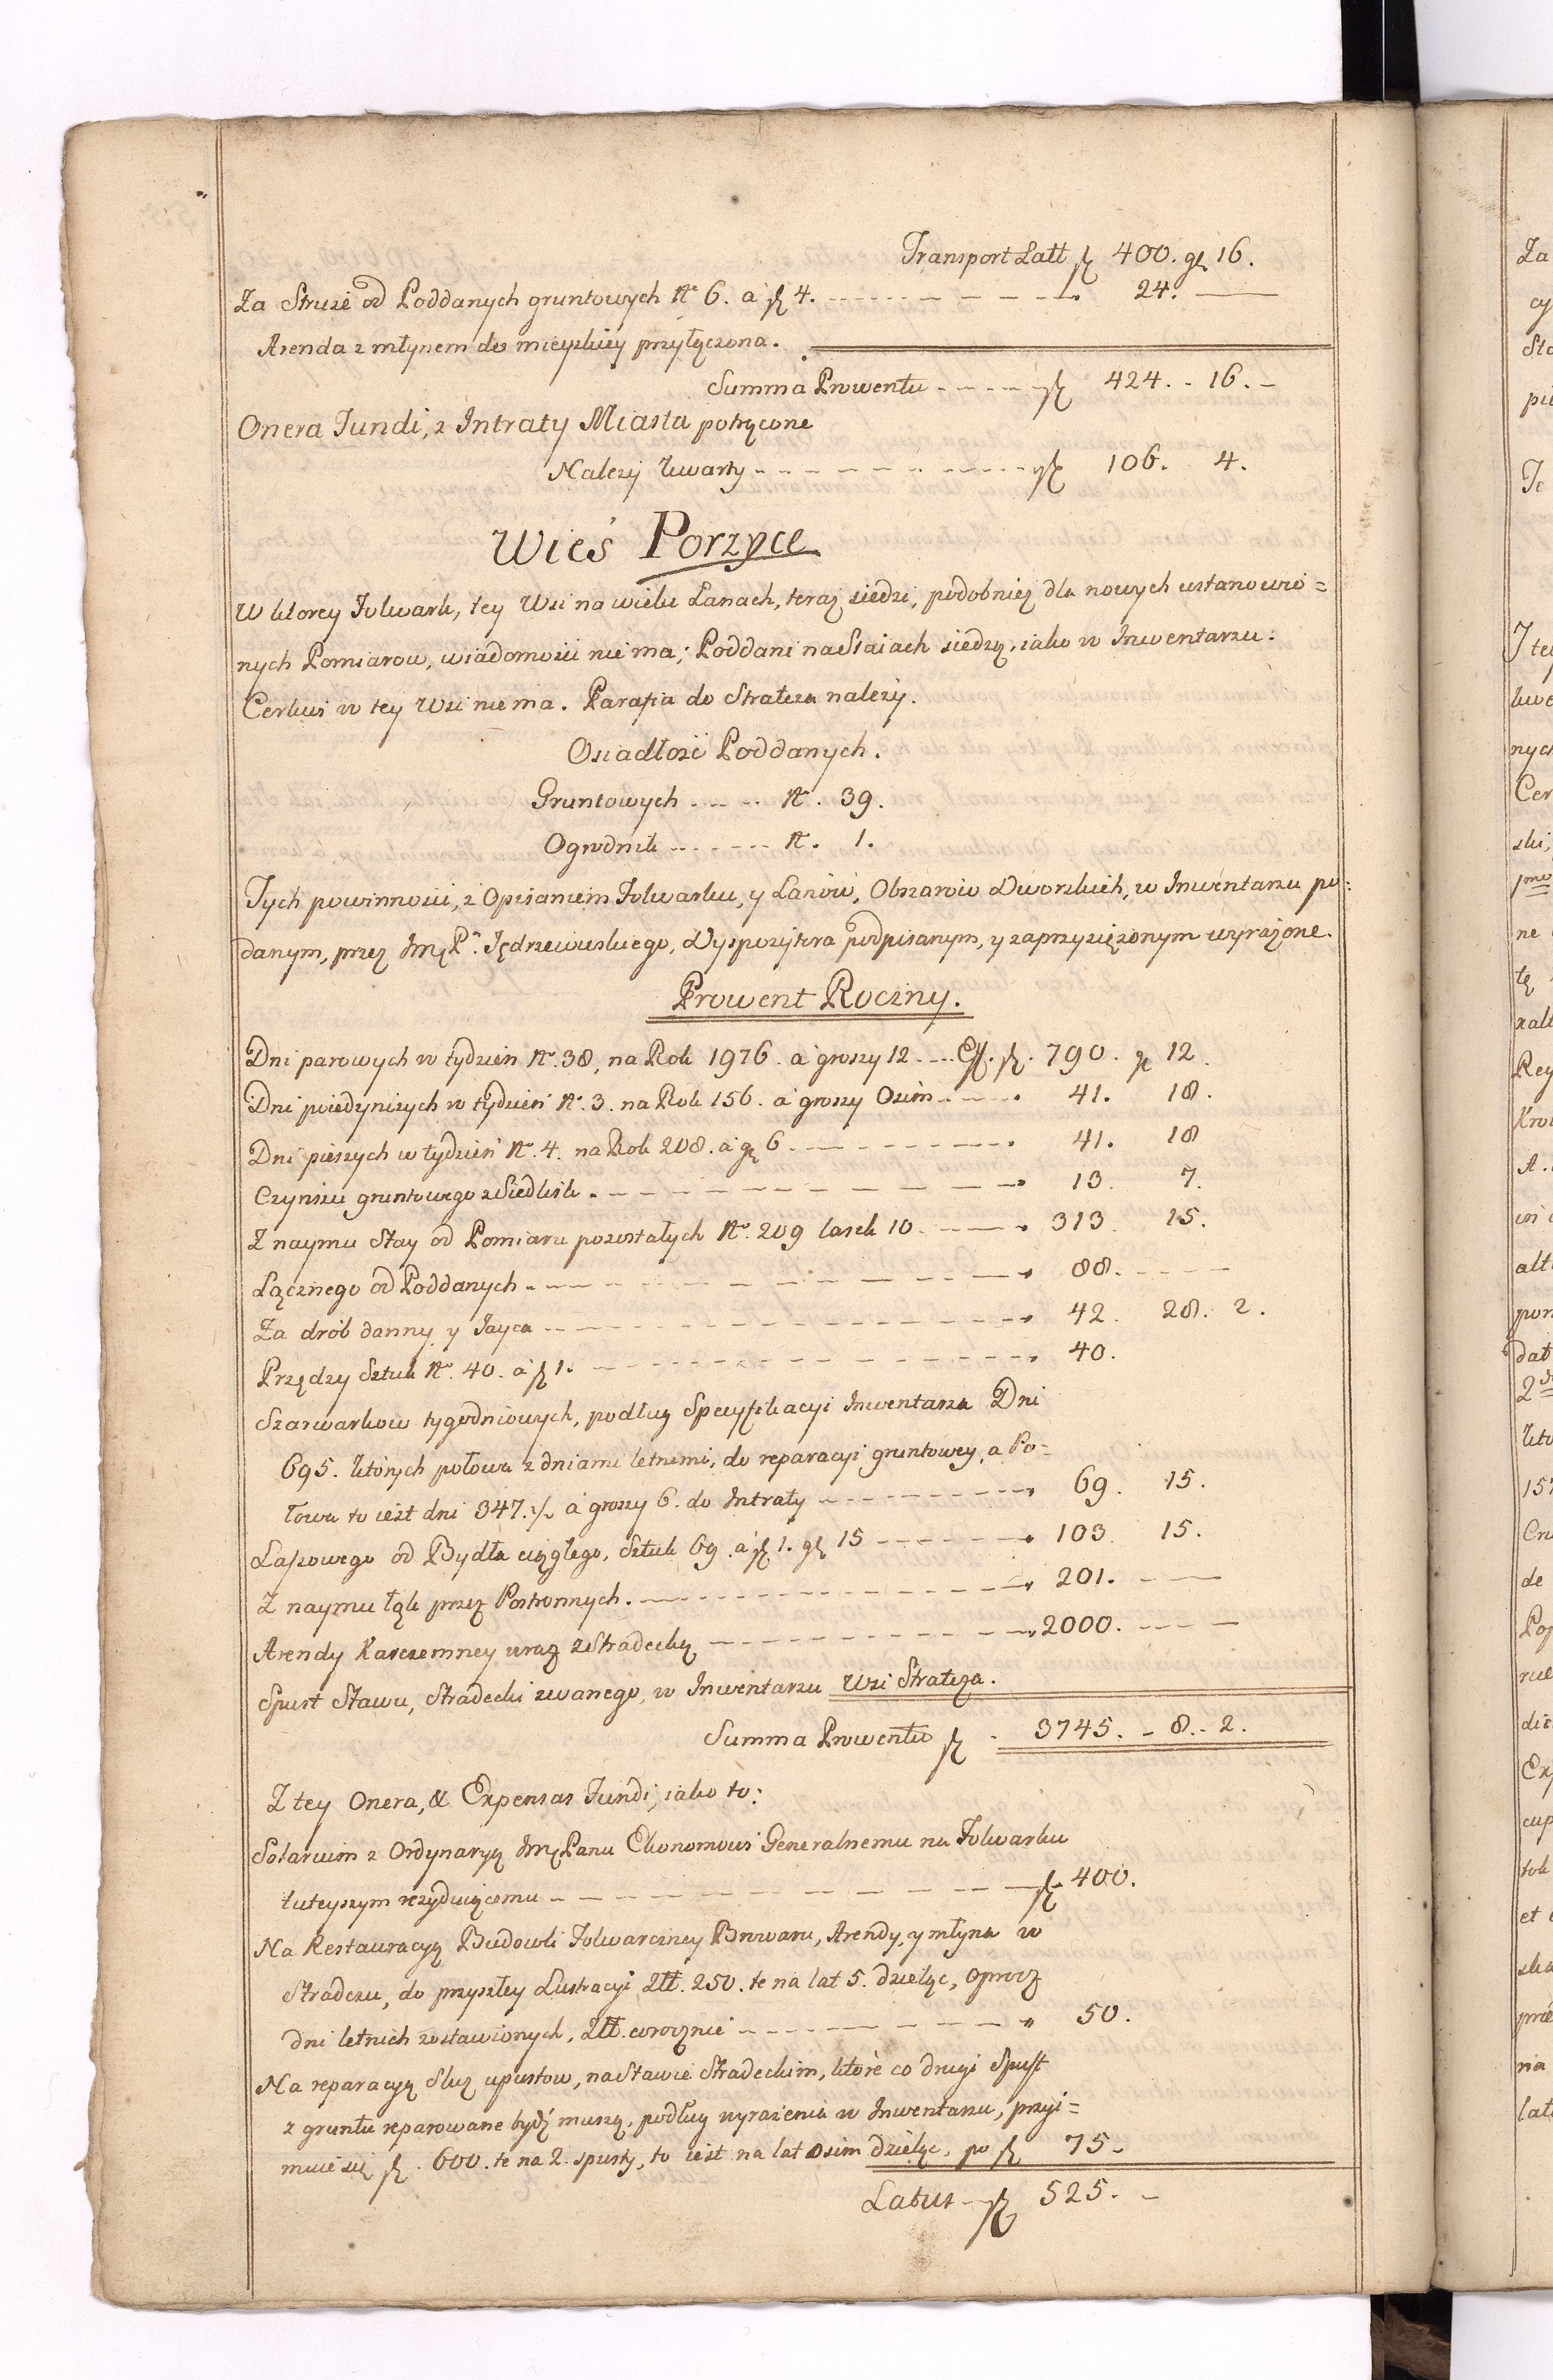 Transport Latt fl 400. gr 16.
Za Struże od Poddanych gruntowych No 6. a fl 4. 24.
Arenda z młynem do mieyskiey przyłączona.
Summa Prowentu fl 424. 16.
Onera Fundi, z Intraty Miasta potrącone
Należy kwarty fl 106. 4.
Wieś Porzyce
W ktorey Folwark, tey Wsi na wielu Łanach, teraz siedzi, podobniez dla nowych ustanowio=
nych Pomiarow, wiadomosci nie ma; Poddani na Staiach siedzą, iako w Inwentarzu.
Cerkwi w tey Wsi nie ma. Parafia do Stratcza należy.
Osiadłość Poddanych.
Gruntowych No. 39.
Ogrodnik No. 1.
Tych powinności, z Opisaniem Folwarku, y Łanów, Obszarow Dworskich, w Inwentarzu po=
danym, przez Jmć Pa. Jędrzeiewskiego, Dyspozytora podpisanym, y zaprzysiężonym wyrażone.
Prowent Roczny.
Dni parowych w tydzien No. 38, na Rok 1976. a groszy 12 Eff. fl. 790. gr 12.
Dni poiedyńczych w tydzień No. 3. na Rok 156. a groszy Osim 41. 18.
Dni pieszych w tydzień No. 4. na Rok 208. a gr 6 41. 18
Czynszu gruntowego z Siedlisk 13. 7.
Z naymu Stay od Pomiaru pozostałych No. 209 lasek 10 313. 15.
Łącznego od Poddanych 88.
Za drób danny y Jayca 42. 28. 2.
Przędzy Sztuk No. 40. a fl 1. 40.
Szarwarkow tygodniowych, podług Specyfikacyi Inwentarza Dni
695. których połowa z dniami letniemi, do reparacyi gruntowey, a Po=
łowa to iest dni 347.½ a groszy 6. do Intraty 69. 15.
Łapowego od Bydła ciągłego, Sztuk 69. a fl 1. gr 15 103. 15.
Z naymu łąk przez Postronnych. 201.
Arendy Karczemney wraz z Stradecką 2000.
Spust Stawu, Stradecki zwanego, w Inwentarzu Wsi Stratcza.
Summa Prowentu fl 3745. 8. 2.
Z tey Onera, & Expensas Fundi, iako to:
Solarium z Ordynaryą Jmć Panu Ekonomowi Generalnemu na Folwarku
tuteyszym rezyduiącemu fl 400.
Na Restauracyą Budowli Folwarczney Browaru, Arendy, y młyna w
Stradczu, do przyszłey Lustracyi Złł. 250. te na lat 5. dzieląc, oprocz
dni letnich zostawionych, Złł. corocznie 50.
Na reparacyą Sluz upustow, na Stawie Stradeckim, które co drugi Spust
z gruntu reparowane bydź muszą, podług wyrażenia w Inwentarzu, przyi=
muie się fl. 600. te na 2. spusty, to iest na lat Osim dzieląc, po fl 75.
Latus fl 525.